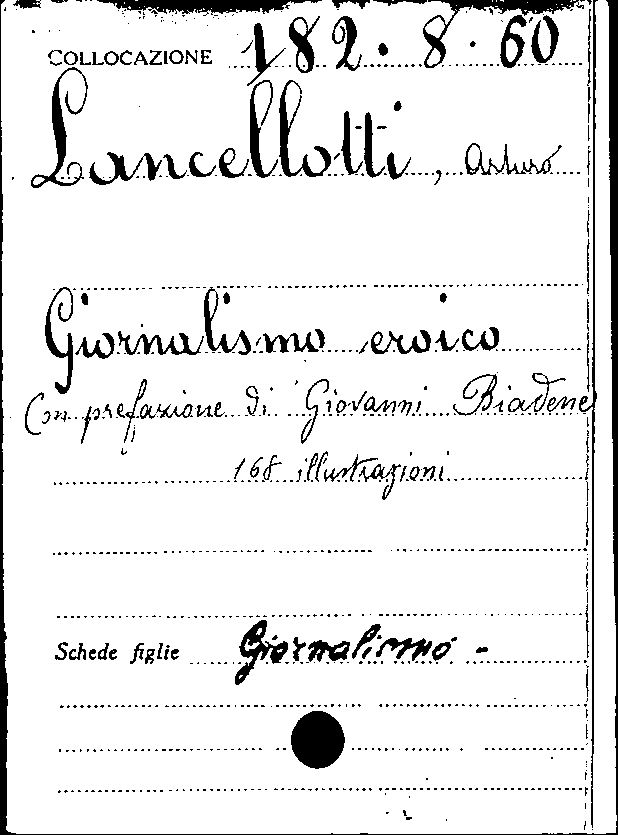 COLLOCAZIONE 182.8.60
Lancellotti, Arturo
Giornalismo eroico
Con prefazione di Giovanni Biadene
168 illustrazioni
Schede figlie Giornalismo -